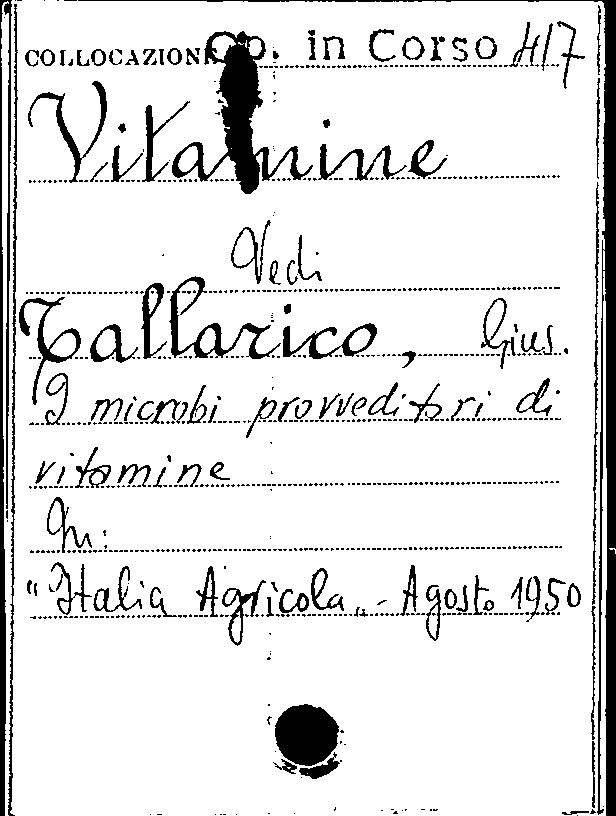 COLLOCAZIONE Op. in Corso 417
Vitamine
Vedi
Tallarico, Gius.
I microbi provveditori di
vitamine
In:
"Italia Agricola„ - Agosto 1950